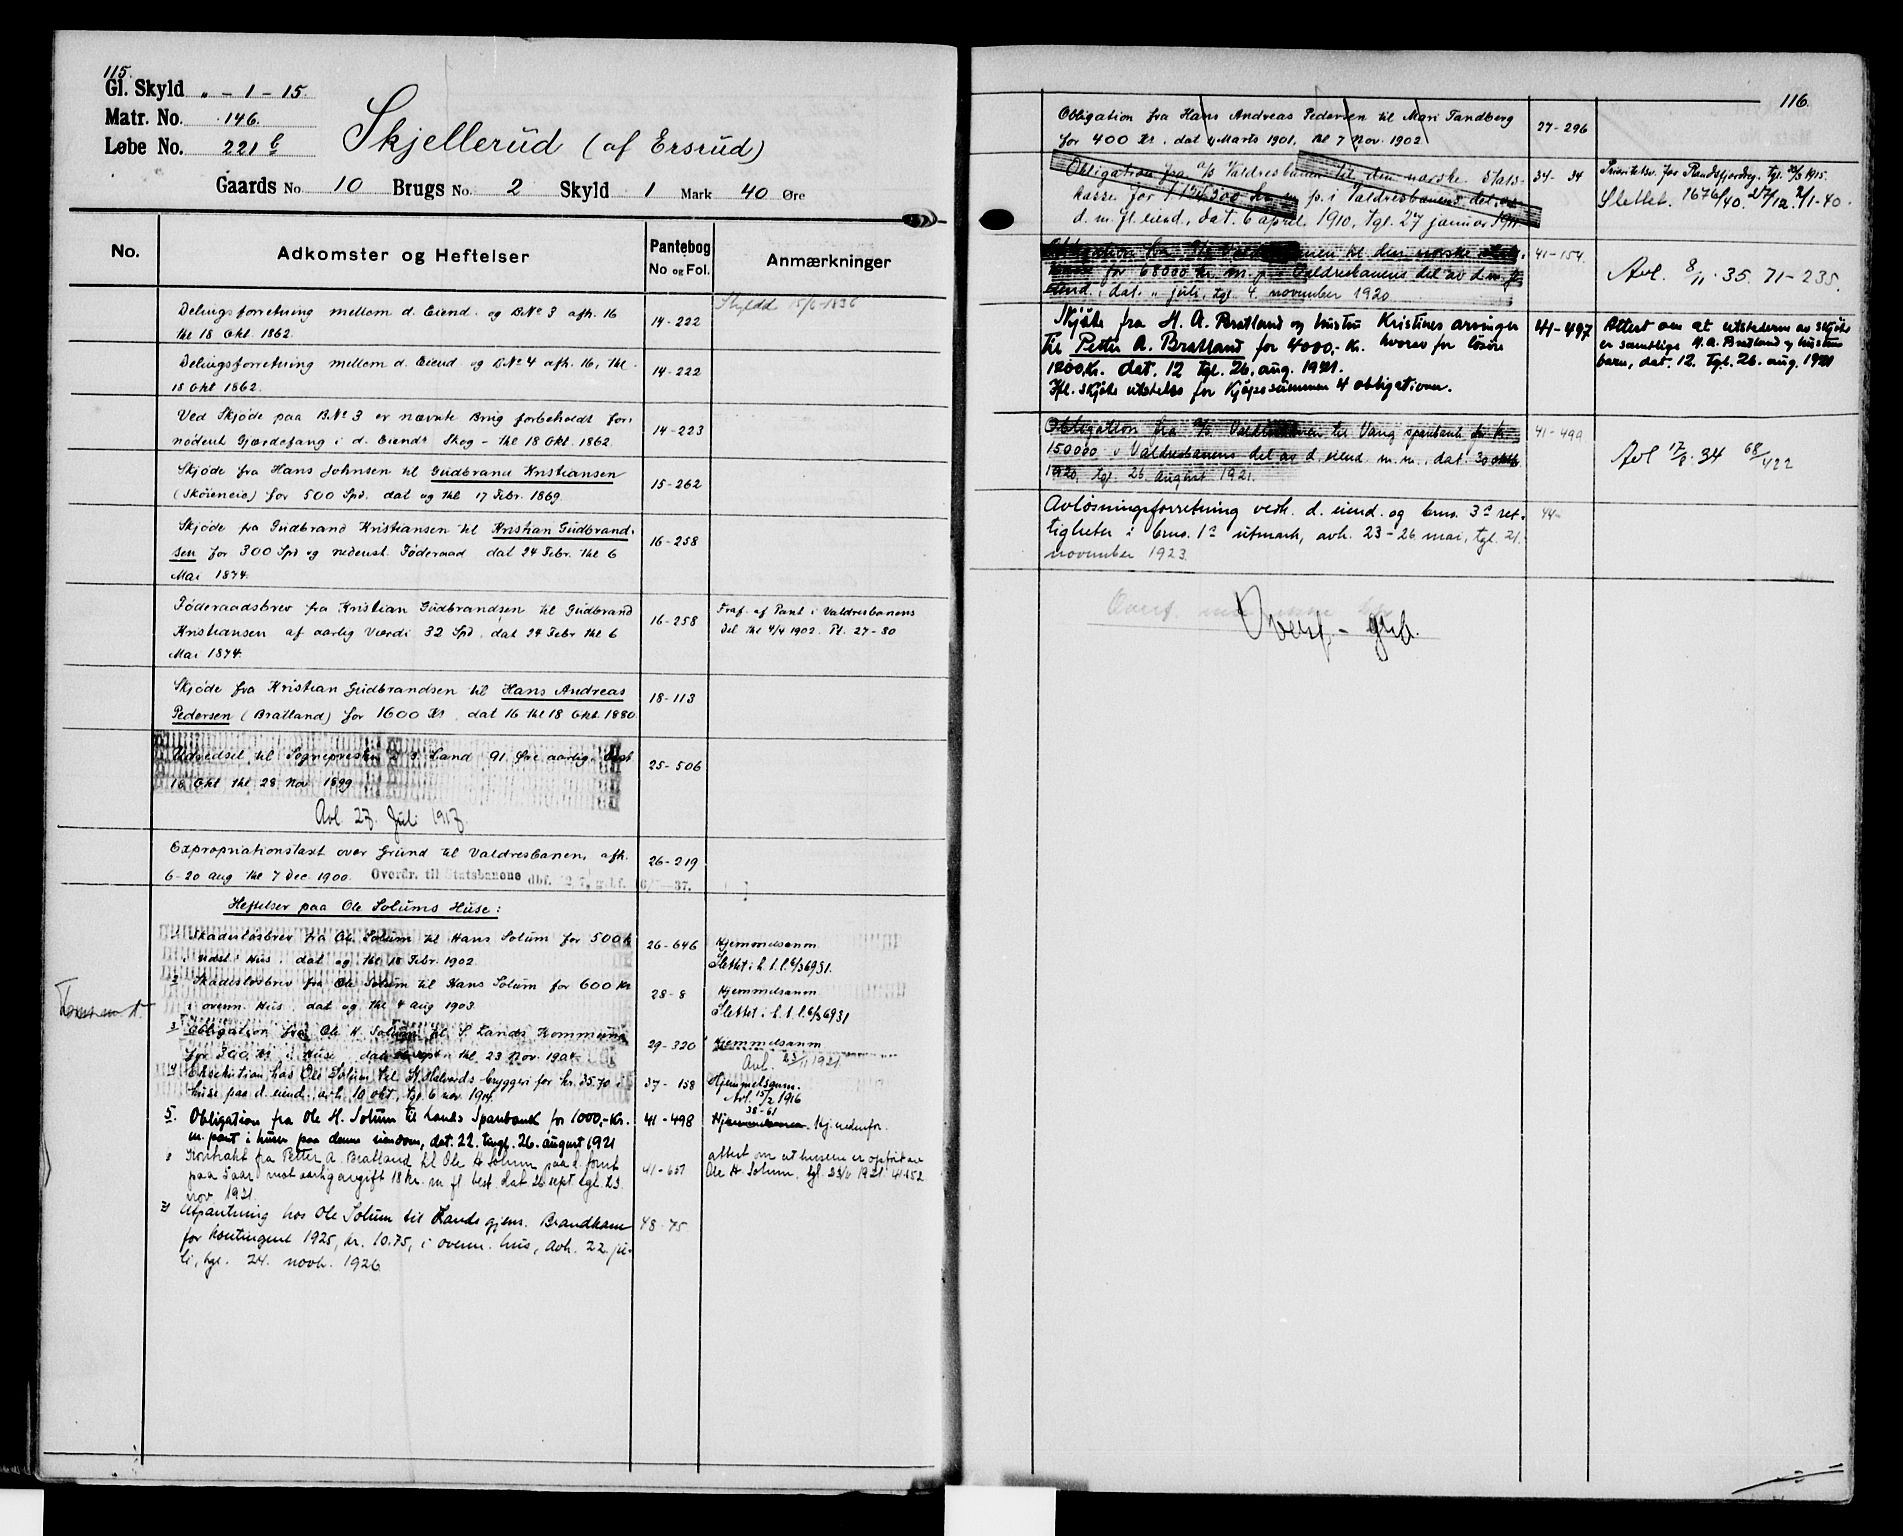 115.
Gl. Skyld „ - 1 - 15.
Matr. No. 146.
Løbe No. 221 b
Skjellerud (af Ersrud)
Gaards No 10 Brugs No. 2 Skyld 1 Mark 40 Øre
No. Adkomster og Heftelser Pantebog No og Fol. Anmærkninger
Delingsforretning mellem d. Eiend. og BNo 3 afh. 16
thl 18 Okt. 1862. 14-222 Skyldd 15/6-1836
Delingsforretning mellem d. Eiend og BNo 4 afh. 16, thl.
18 Okt 1862. 14-222
Ved Skjøde paa BNo 3 er nævnte Brug forbeholdt for-
nødent Gjærdefang i d. Eiend's Skog - thl 18 Okt. 1862. 14-223
Skjøde fra Hans Johnsen til Gudbrand Kristiansen
(Skøieneie) for 500 Spd. dat og thl 17 Febr. 1869. 15-262
Skjøde fra Gudbrand Kristiansen til Kristian Gudbrand-
sen for 300 Spd og nedenst. Føderaad dat 24 Febr. thl 6
Mai 1874. 16-258
Føderaadsbrev fra Kristian Gudbrandsen til Gudbrand
Kristiansen af aarlig Værdi 32 Spd. dat 24 Febr thl 6
Mai 1874. 16-258
Fraf. af Pant i Valdresbanens
del thl 4/4 1902. Pt. 27-80
Skjøde fra Kristian Gudbrandsen til Hans Andreas
Pedersen (Bratland) for 1600 Kr, dat 16 thl 18 Okt. 1880. 18-113
til Sognepresten i S. Land 91 Øre aarlig,
16 Okt thl 28 Nov 1899 25-506
Avl. 27. Juli 1917.
Expropriationstaxt over Grund til Valdresbanen, afh.
6-20 aug thl 7 Dec. 1900. Overdr. til Statsbanene 26-219
Heftelser paa Ole Solums Huse:
1 Skadesløsbrev fra Ole Solum til Hans Solum for 500 K
i nedst. Hus, dat og thl 18 Febr. 1902. 26-646
Hjemmelsanm.
Slettet i h. t. l. 6/3 6931.
2 Skadesløsbrev fra Ole Solum til Hans Solum for 600 Kr
i ovenn. Hus, dat og thl 4 aug 1903. 28-8
Hjemmelsanm
Slettet i h. t. l. 6/3 6931
3 Obligation fra Ole H. Solum til S. Lands Kommune
for 300 Kr i Huse, dat thl. 23 Nov. 1904. 29-320
Hjemmelsanm
Avl. 23/11 1921
4) Eksekution hos Ole Solum til H. Halvords byggeri for kr. 35.70 i
huse paa d. eiend. avh. 10 okt, tgl. 6 nov. 1914. 37-158
Hjemmelsanm.
Avl. 15/2 1916
38-61
5. Obligation fra Ole H. Solum til Lands Sparebank for 1000,- Kr.
m. pant i huse paa denne eiendom, dat. 22. tingl. 26. august 1921 41-498 Hj. nedenfor.
Kontrakt fra Petter A. Bratland til Ole H Solum paa d. fomt
paa 5 aar mot aarlig avgift 18 kr. m. fl. best. dat. 26 sept. tgl. 23.
nov. 1921. 41-651
attest om at husene er opført av
Ole H Solum, tgl. 23/11 1921 41-652
7) Utpantning hos Ole Solum til Lands gjens. Brandkasse
for kontingent 1925, kr. 10.75, i ovenn. hus, avh. 22 ju-
li, tgl. 24. novb. 1926. 48-75.
116.
Obligation fra Hans Andreas Pedersen til Mari Tandberg
for 400 Kr, dat Marts 1901, thl 7 Nov. 1902 27-296
Obligation fra A/S Valdresbanen til den norske Stats-
kasse for 1 124 300 kr m. p. i Valdresbanens del av
d. m. fl. eiend., dat. 6 april 1910, tgl. 27 januar 1911 34-34
Prioritetsv. for Randsfjordrg. tgl. 1915.
Slettet. 1676/40. 27/12. 2/1-40.
Obligation fra A/S Valdresbanen til den norske
for 68000 kr. m. p. i Valdresbanens del av d. m. fl.
eiend, dat. „ juli, tgl. 4. november 1920 41-154.
Avl. 8/11.35. 71-235.
Skjøte fra H. A. Bratland og hustru Kristines arvinger
til Petter A. Bratland for 4000,- kr. hvorav for løsøre
1200 Kr. dat. 12 tgl. 26. aug. 1921.
Ifl. skjøte utstedes for kjøpesummen 4 obligationer. 41-497
Attest om at utstederne av skjøte
er samtlige H. A. Bratland og hustrus
barn, dat. 12. tgl. 26. aug. 1921
Obligation fra A/S Valdresbanen til Vang sparebank for kr.
150000 i Valdresbanens del av d. eiend. m.m., dat. 30
1920, tgl. 26 august 1921. 41-499
Avl 17/8.34 68/422
Avløsningsforretning vedk. d. eiend. og brno. 3's ret-
tigheter i brno. 1's utmark, avh. 23-26 mai, tgl. 21.
november 1923. 44-
Overf. - grb.